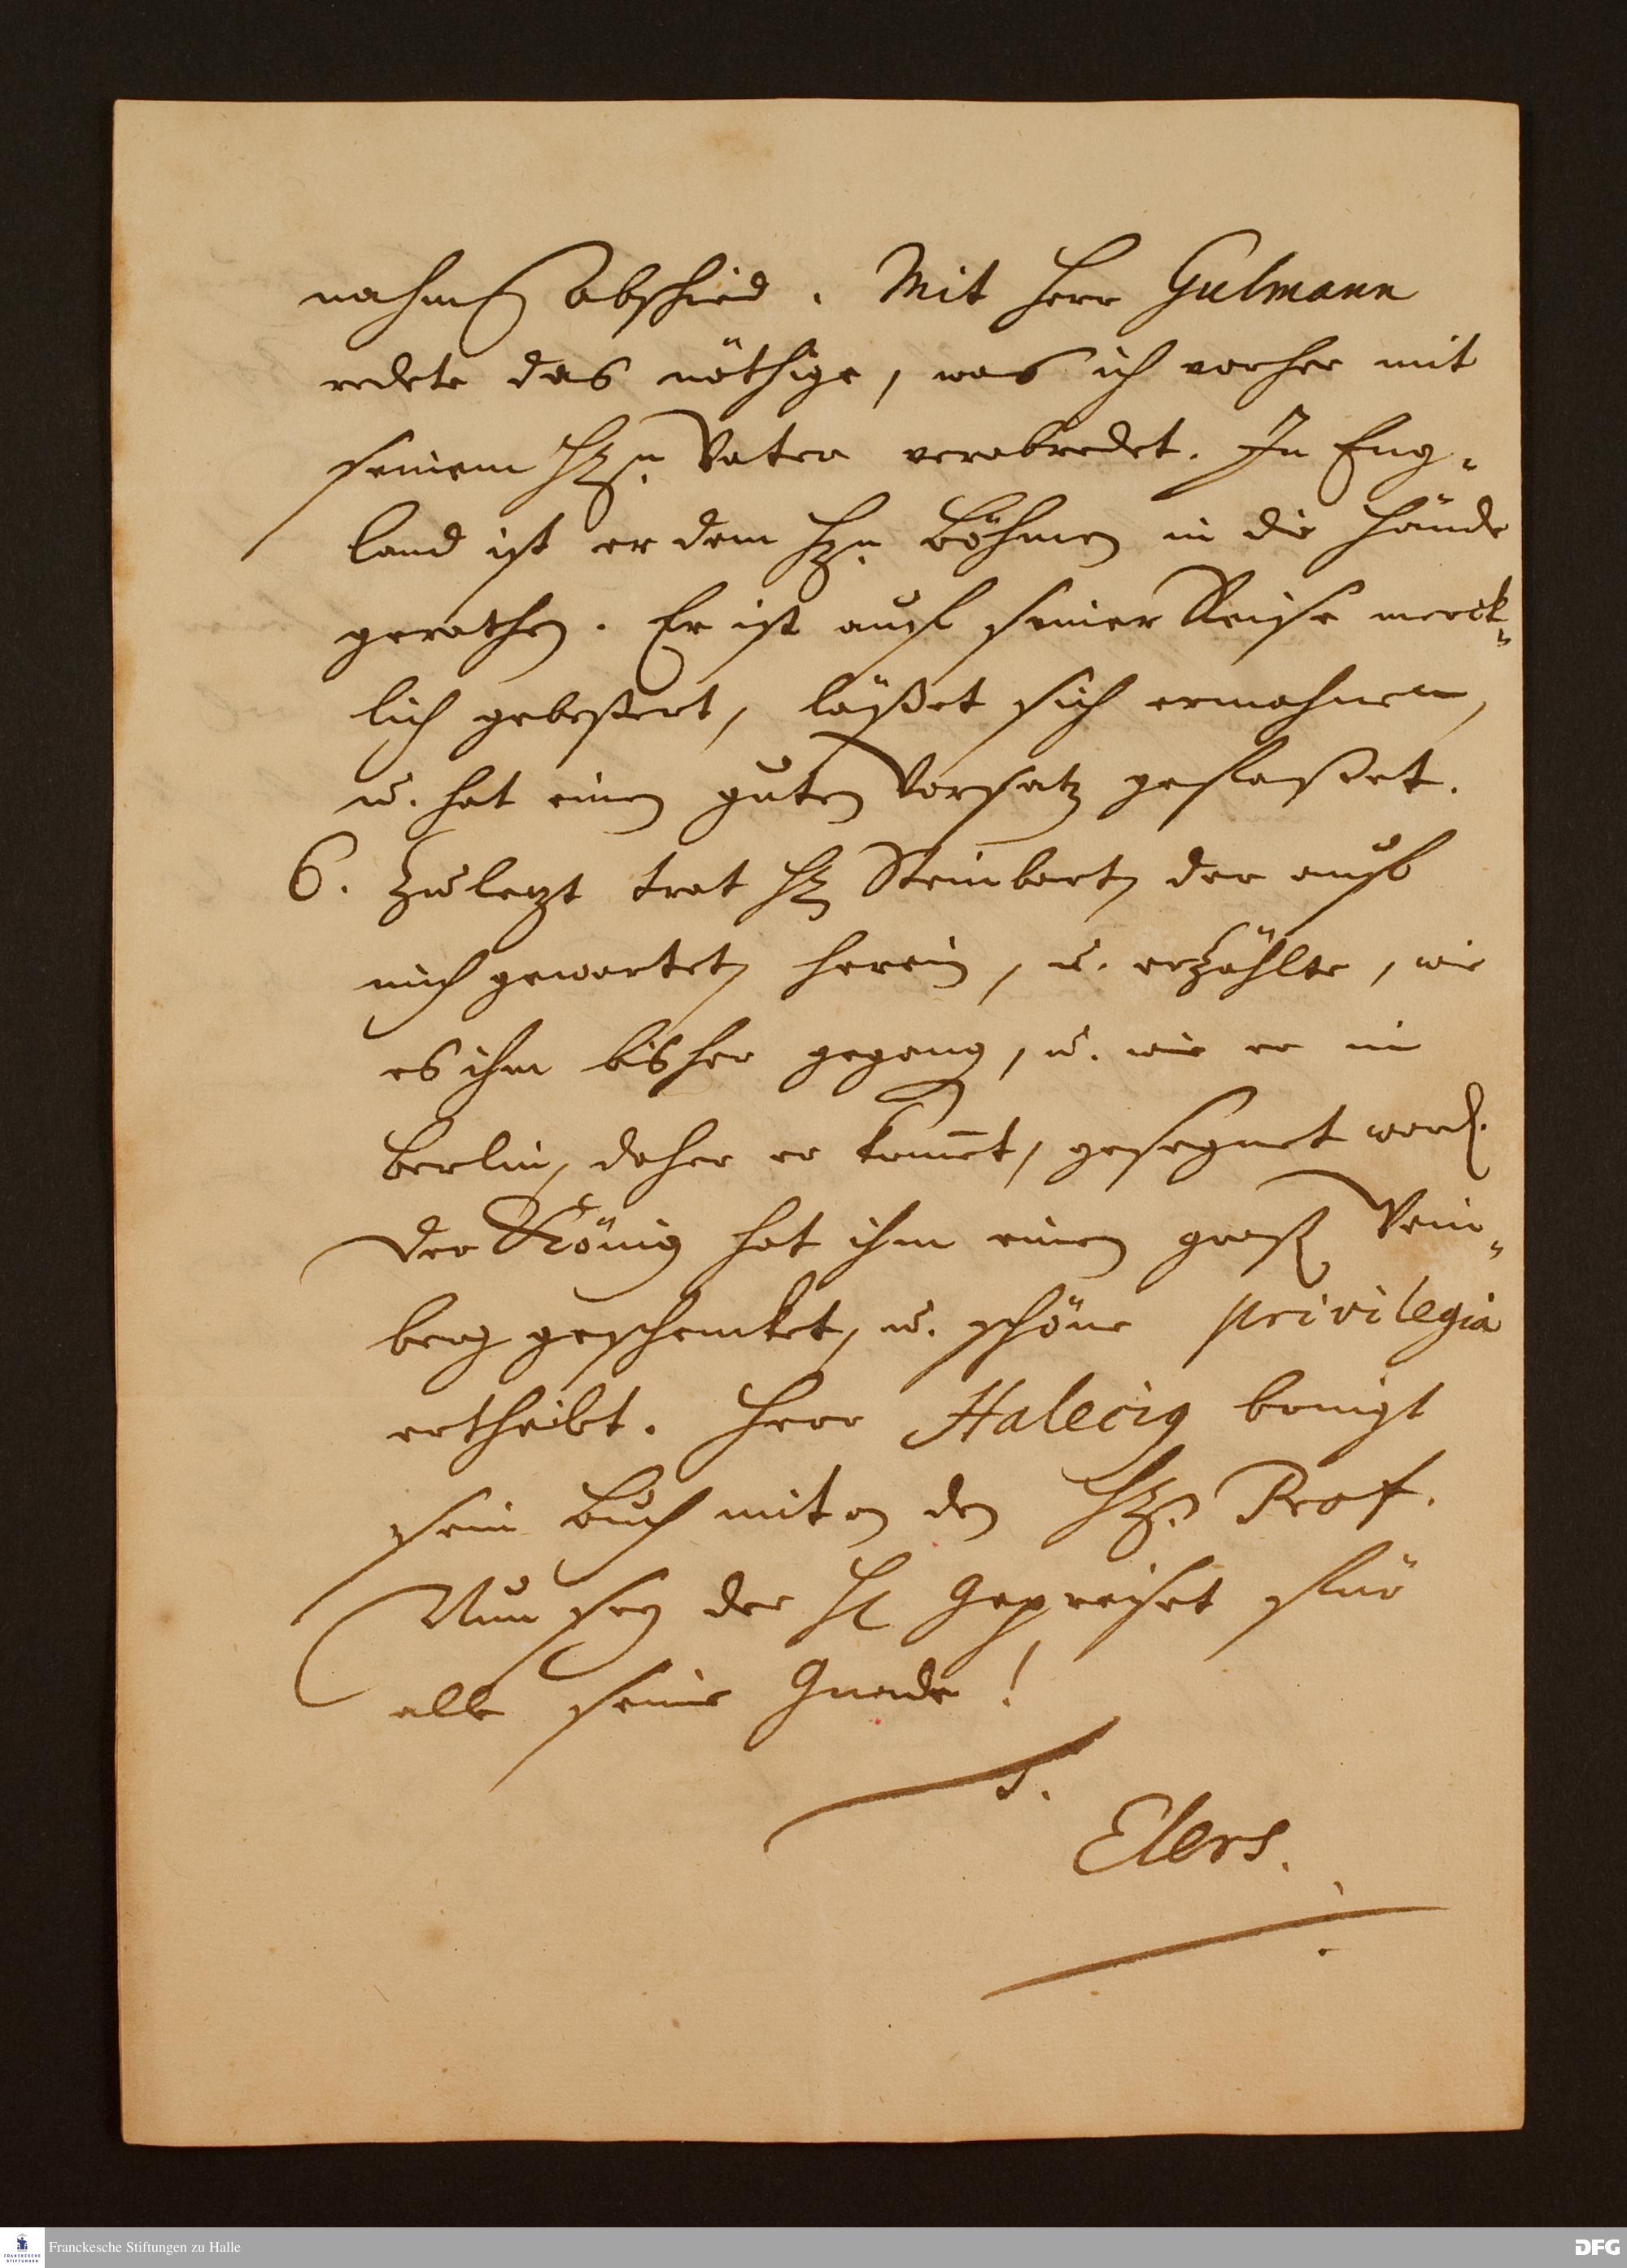 nahmen abschied. Mit Herr Gulmann
redete das nöthige, was ich vorher mit
seinem Hrn. Vater verabredet. In Eng-
land ist er dem Hrn. Böhmen in die Hände
gerathen. Er ist auf seiner Reise merck-
lich gebeßert, läßet sich ermahnen,
u. hat einen guten Vorsatz gefaßet.
6. Zuletzt trat Hr. Steinbart, der auf
mich gewartet, herein, u. erzählte, wie
es ihm bisher gegang, u. wie er in
Berlin, daher er kommt, gesegnet word.
Der König hat ihm einen groß Wein-
berg geschencket, u. schöne privilegia
ertheilet. Herr Halecig bringt
sein Buch mit an den Hrn. Prof.
Nun sey der H. gepreiset für
alle seine Gnade!
Elers.
Franckesche Stiftungen zu Halle
DFG